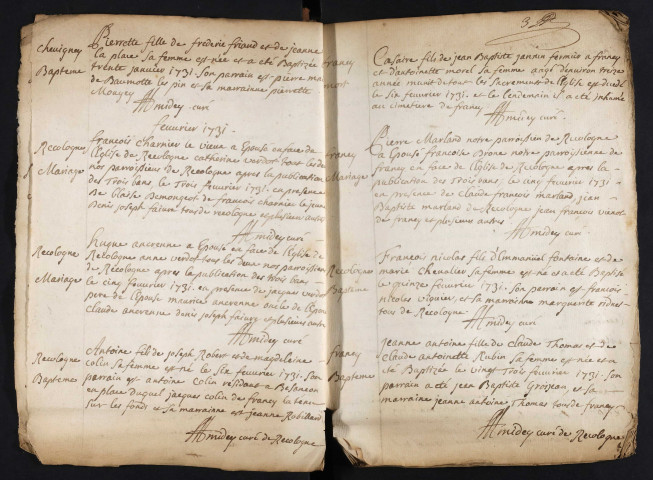 chevigney
Bapteme
Pierrette fille de frederic friaud et de jeanne
la place sa femme est née et a été Baptizée
trente janvier 1731. Son parrain est pierre
de Baumotte les pin et sa marrainne pierrette
Mougey
AAmidey curé
fevurier 1731.
Recologne
Mariage
françois charnier le vieux a Epousé en face de
l'Eglise de Recologne catherine verdot tous les deux
nos parroissiens de Recologne apres la publication
des Trois bans, le Trois fevurier 1731. en presence
De Claude Demongeot de francois charnier le jeune
Denis joseph faivre tous de recologne et plusieurs autres
AAmidey curé
Recologne
Mariage
Hugue ancerenne a Epousé en face de l'Eglise de
Recologne anne verdot tous les deux nos parroissiens
de Recologne apres la publication des trois bans
le cinq fevurier 1731. en presence de jacques verdot
pere de l'epouse maurice ancerenne oncle de l'epoux
claude ancerenne denis joseph faivre et plusieurs autres
AAmidey curé
Recologne
Bapteme
Antoine fils de joseph Robert et de magdelaine
colin sa femme est né le six fevurier 1731. Son
parrain est antoine colin residant a Besancon
en place duquel jacques colin de francy l'a tenu
sur les fonds et sa marraine est jeanne Robillard
AAmidey curé de Recologne
3
francy
mort
Casaire fils de jean Baptiste jannin fermier a francy
et d'antoinette morel sa femme agé d'environ treize
années muni de tout les Sacrements de l'Eglise est decedé
le six fevurier 1731. et le lendemain il a été inhumé
au cimetiere de francy
AAmidey curé
francy
Mariage
Pierre Marland notre parroissien de Recologne
a Epousé francoise Brone notre parroissienne de
francy en face de l'Eglise de Recologne apres la
publication des Trois bans, le cinq fevurier 1731
en presence des Claude francois marland, jean
Baptiste marland de Recologne jean francois
de francy et plusieurs autres
AAmidey curé
Recologne
Bapteme
Francois nicolas fils d'Emmanuel fontaine et de
marie chevalier sa femme est né et a été Baptisé
le quinze fevurier 1731. son parrain est francois
nicolas viguier, et sa marraine marguerite
tous de Recologne
AAmidey curé
francy
Bapteme
jeanne antoine fille de claude Thomas et de
claude antoinette Robin sa femme est née et a
été Baptizée le vingt Trois fevurier 1731. son
parrain a été jean Baptiste Grosjean et sa
marraine jeanne antoine Thomas tous de francy
AAmidey curé de Recologne